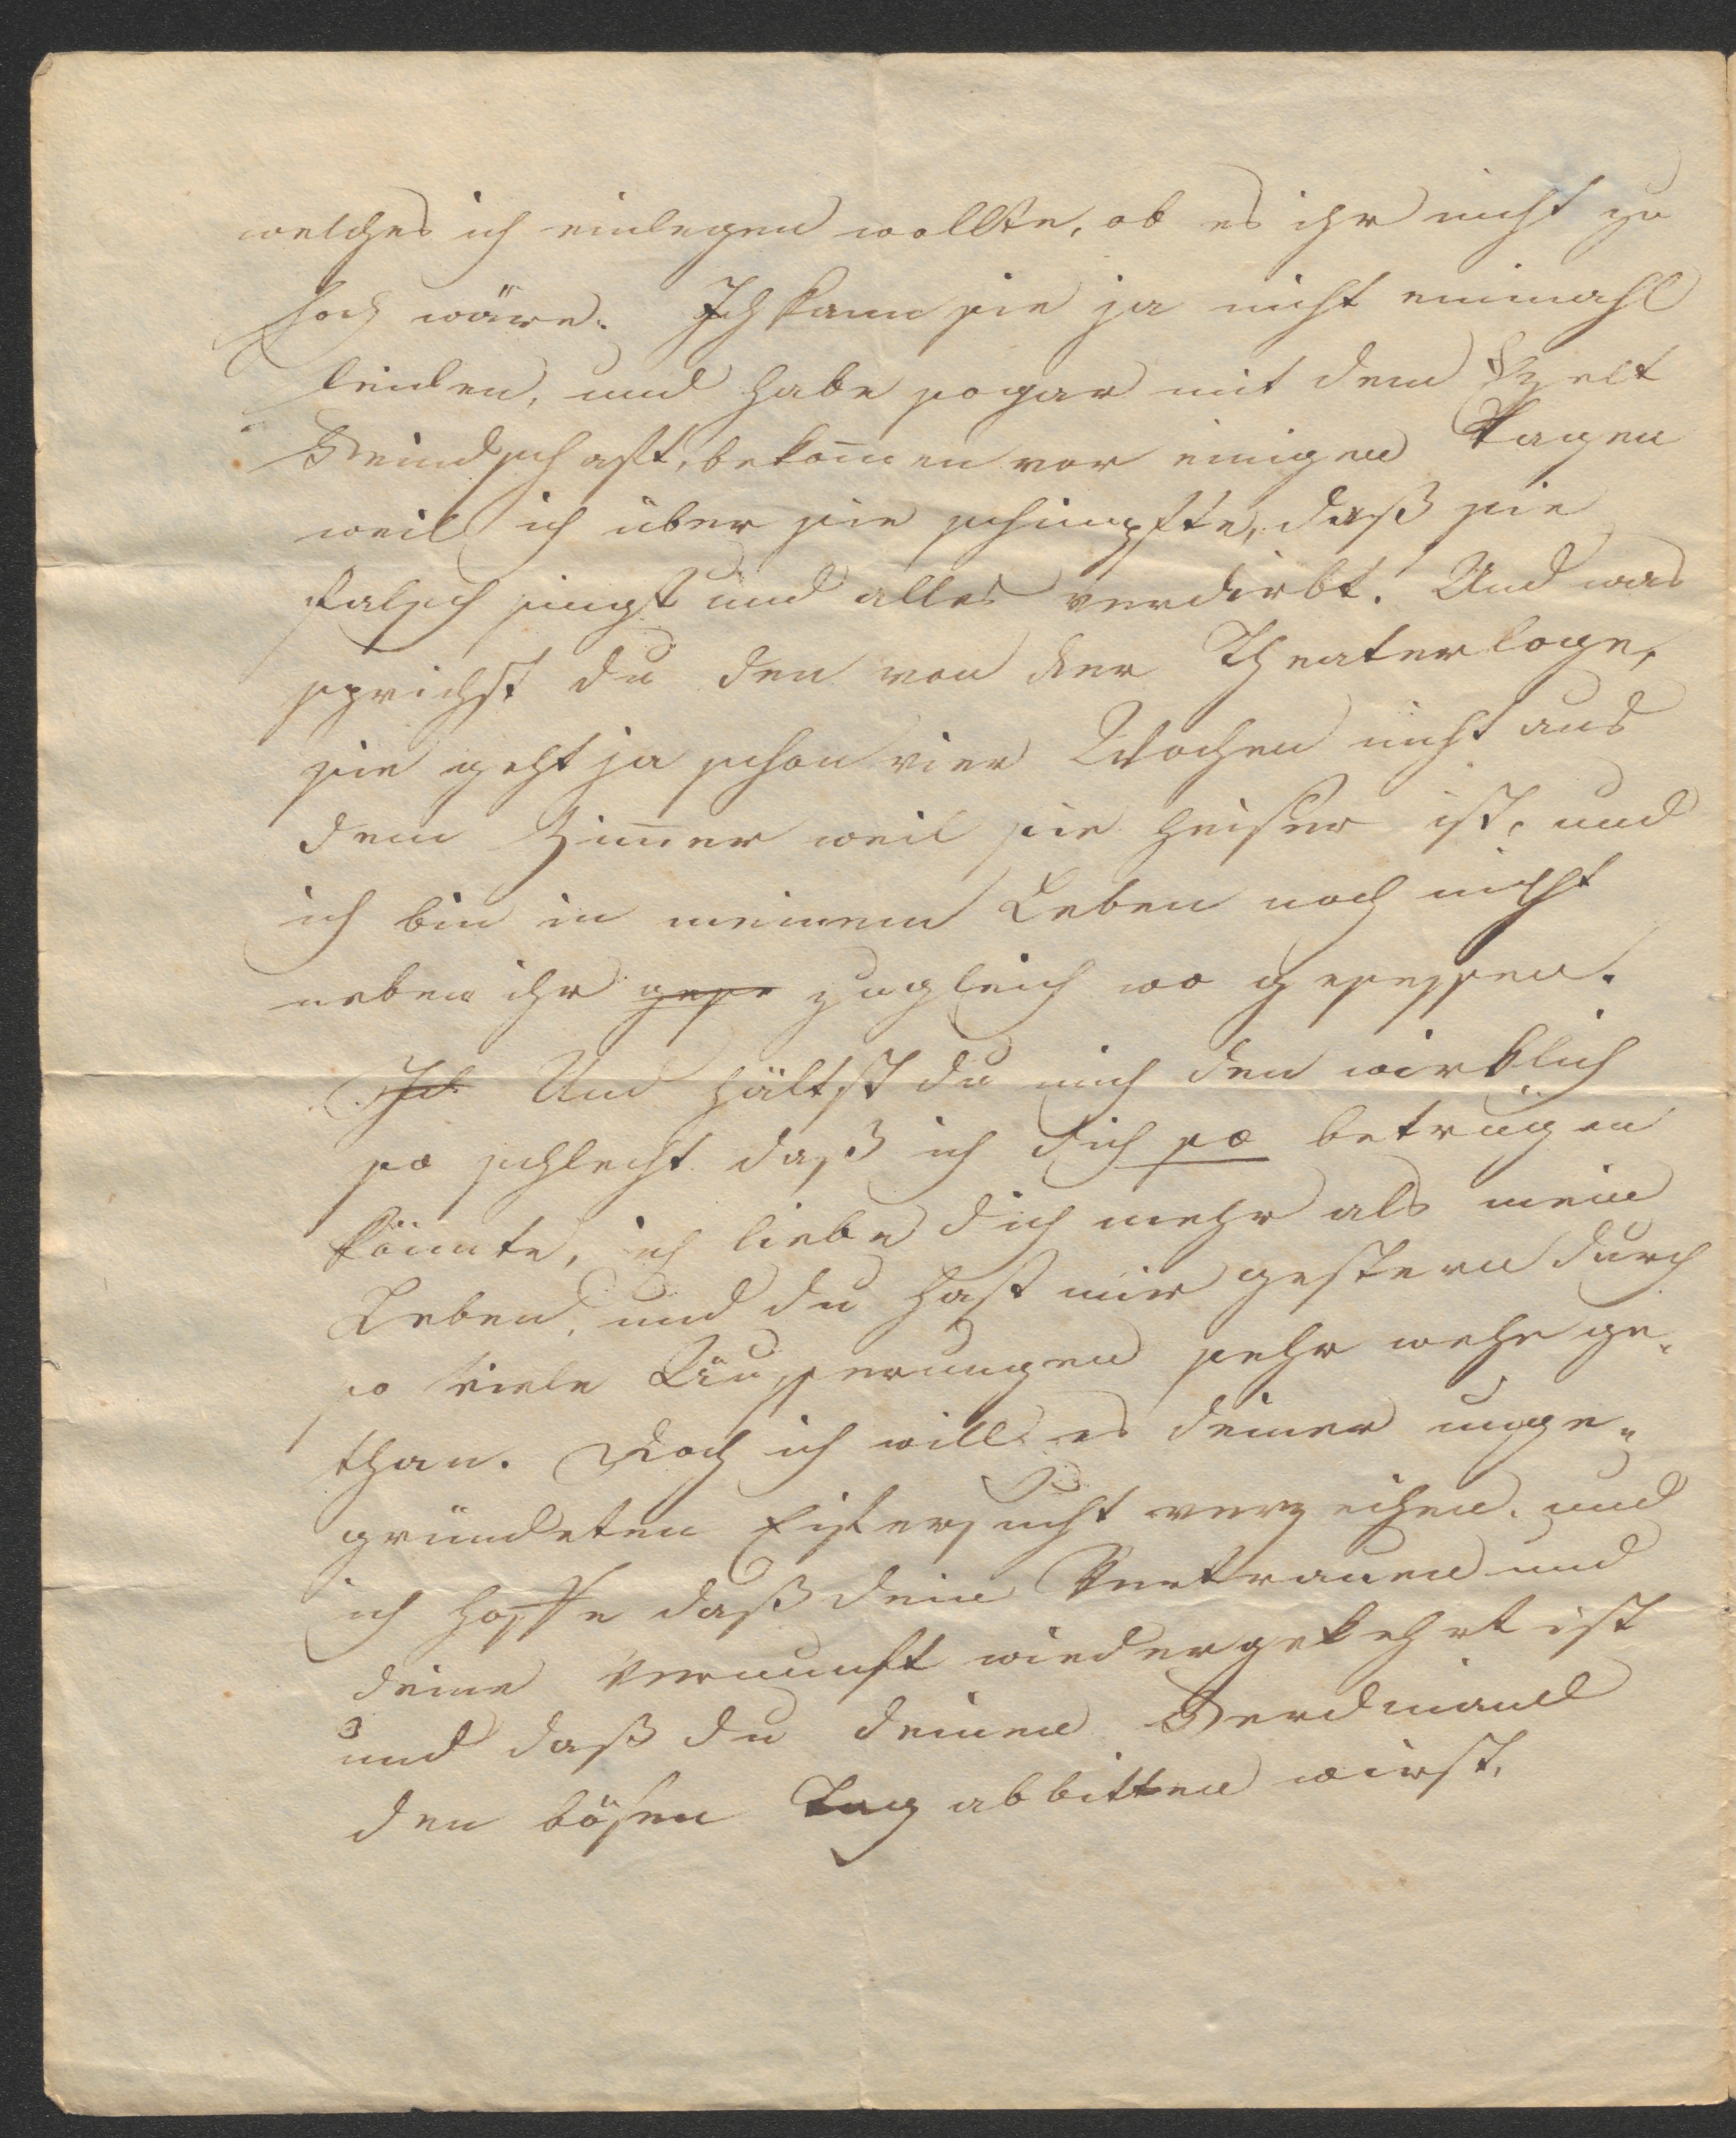 welches ich einlegen wollte, ob es ihr nicht zu
hoch wäre. Ich kann sie ja nicht einmahl
leiden, und habe sogar mit dem
Feindschaft, bekom̅en vor einigen Tagen
weil ich über sie schimpfte, daß sie
falsch singt und alles verdirbt. Und was
sprichst du den von der Theaterloge,
sie geht ja schon vier Wochen nicht aus
dem Zim̅er weil sie heiser ist, und
ich bin in meinem Leben noch nicht
neben ihr gese zugleich wo gesessen.
Ich Und hältst du mich den wirklich
so schlecht daß ich dich so betrügen
könnte, ich liebe dich mehr als mein
Leben, und du hast mir gestern durch
so viele Äusserungen sehr wehe ge-
than. Doch ich will es deiner unge-
gründeten Eifersucht verzeihen. und
ich hoffe daß dein Vertrauen und
deine Vernunft wiedergekehrt ist
und daß du deinen Ferdinand
den bösen Tag abbitten wirst.